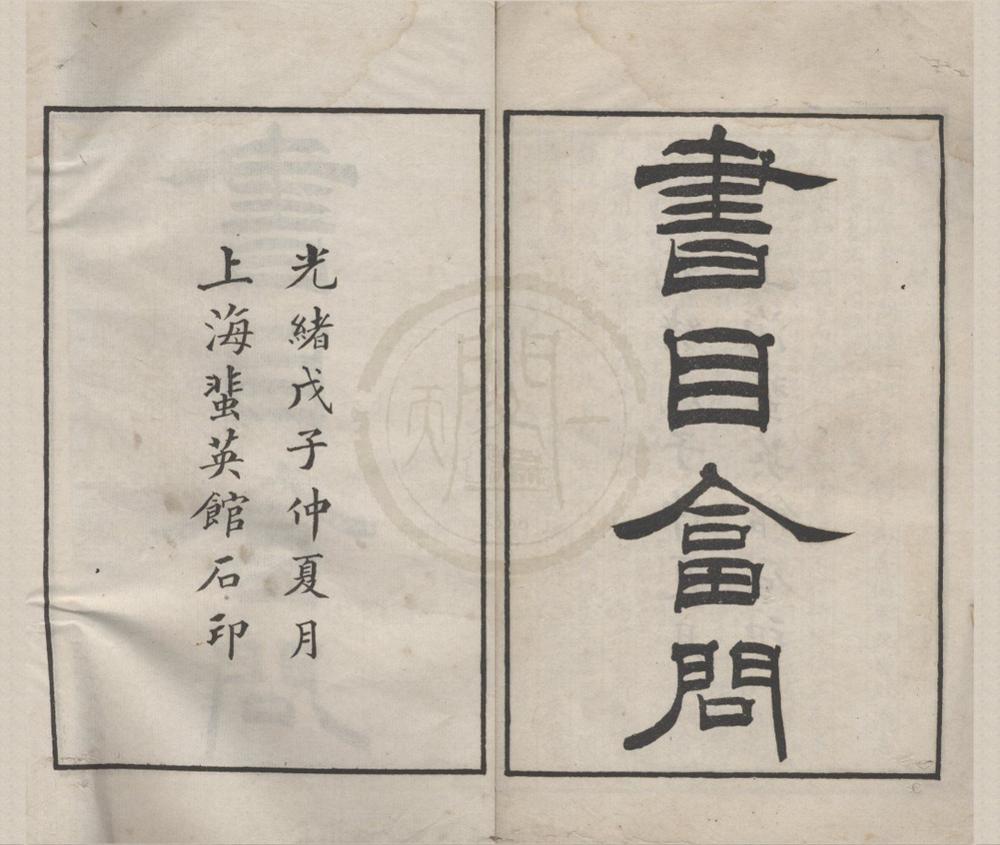 書目畣問
光緒戊子仲夏月
上海蜚英館石印